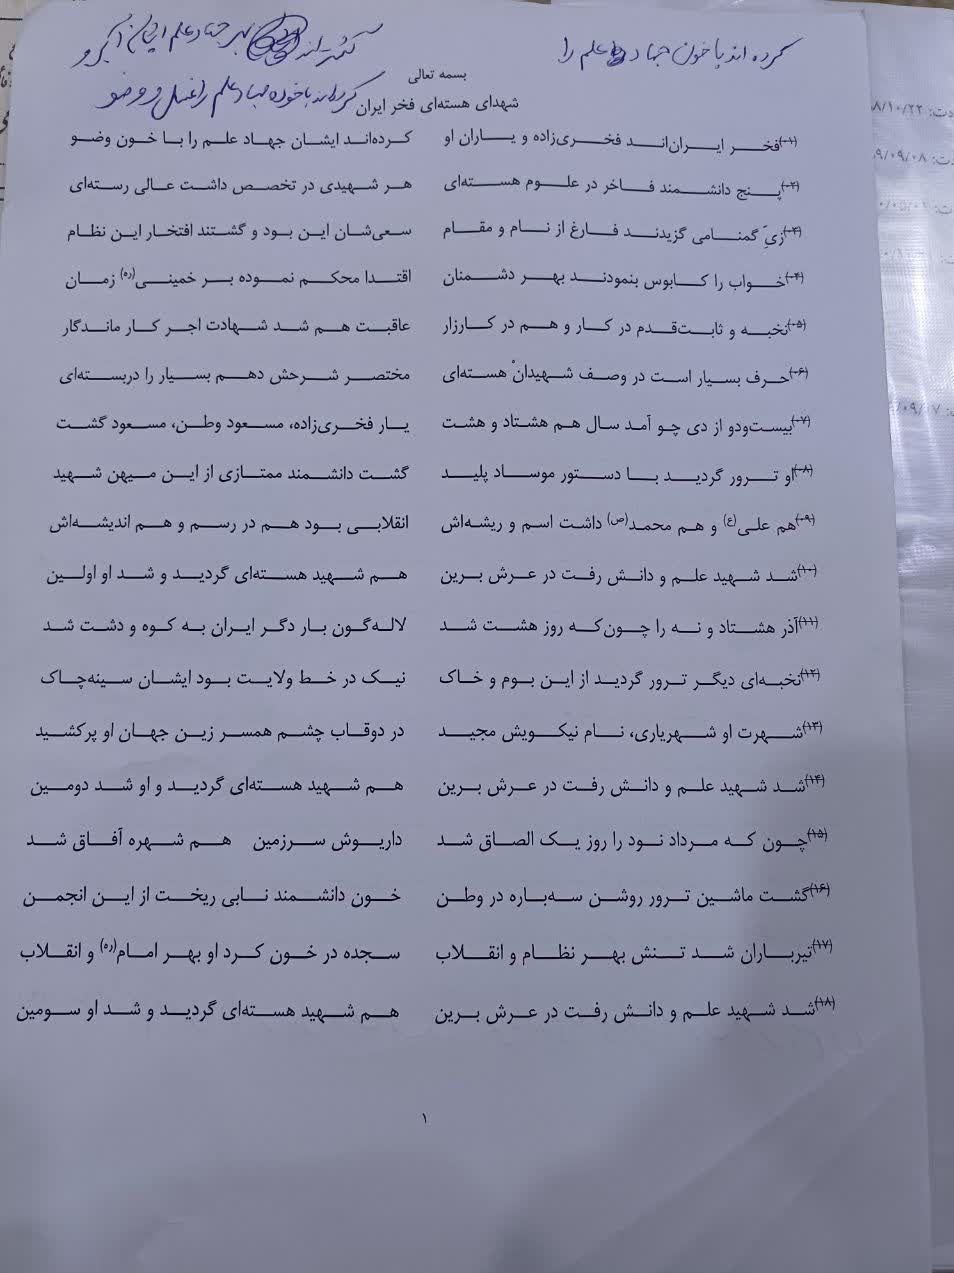 کرده اند با خون جهاد علم را
بهر جهاد علم ایشان آبرو
بسمه تعالی
کرده‌اند با خود جهاد علم را غسل و وضو
شهدای هسته‌ای فخر ایران
(۱-)فخر ایران‌اند فخری‌زاده و یاران او کرده‌اند ایشان جهاد علم را با خون وضو
(۲-)پنج دانشمند فاخر در علوم هسته‌ای هر شهیدی در تخصص داشت عالی رسته‌ای
(۳-)زیّ گمنامی گزیدند فارغ از نام و مقام سعی‌شان این بود و گشتند افتخار این نظام
(۴-)خواب را کابوس بنمودند بهر دشمنان اقتدا محکم نموده بر خمینی(ره) زمان
(۵-)نخبه و ثابت‌قدم در کار و هم در کارزار عاقبت هم شد شهادت اجر کار ماندگار
(۶-)حرف بسیار است در وصف شهیدانْ هسته‌ای مختصر شرحش دهم بسیار را دربسته‌ای
(۷-)بیست‌ودو از دی چو آمد سال هم هشتاد و هشت یار فخری‌زاده، مسعود وطن، مسعود گشت
(۸-)او ترور گردید با دستور موساد پلید گشت دانشمند ممتازی از این میهن شهید
(۹-)هم علی(ع) و هم محمد(ص) داشت اسم و ریشه‌اش انقلابی بود هم در رسم و هم اندیشه‌اش
(۱۰)شد شهید علم و دانش رفت در عرش برین هم شهید هسته‌ای گردید و شد او اولین
(۱۱)آذر هشتاد و نه را چون‌که روز هشت شد لاله‌گون بار دگر ایران به کوه و دشت شد
(۱۲)نخبه‌ای دیگر ترور گردید از این بوم و خاک نیک در خط ولایت بود ایشان سینه‌چاک
(۱۳)شهرت او شهریاری، نام نیکویش مجید در دوقاب چشم همسر زین جهان او پرکشید
(۱۴)شد شهید علم و دانش رفت در عرش برین هم شهید هسته‌ای گردید و او شد دومین
(۱۵)چون که مرداد نود را روز یک الصاق شد داریوش سرزمین هم شهره آفاق شد
(۱۶)گشت ماشین ترور روشن سه‌باره در وطن خون دانشمند نابی ریخت از این انجمن
(۱۷)تیرباران شد تنش بهر نظام و انقلاب سجده در خون کرد او بهر امام(ره) و انقلاب
(۱۸)شد شهید علم و دانش رفت در عرش برین هم شهید هسته‌ای گردید و شد او سومین
۱